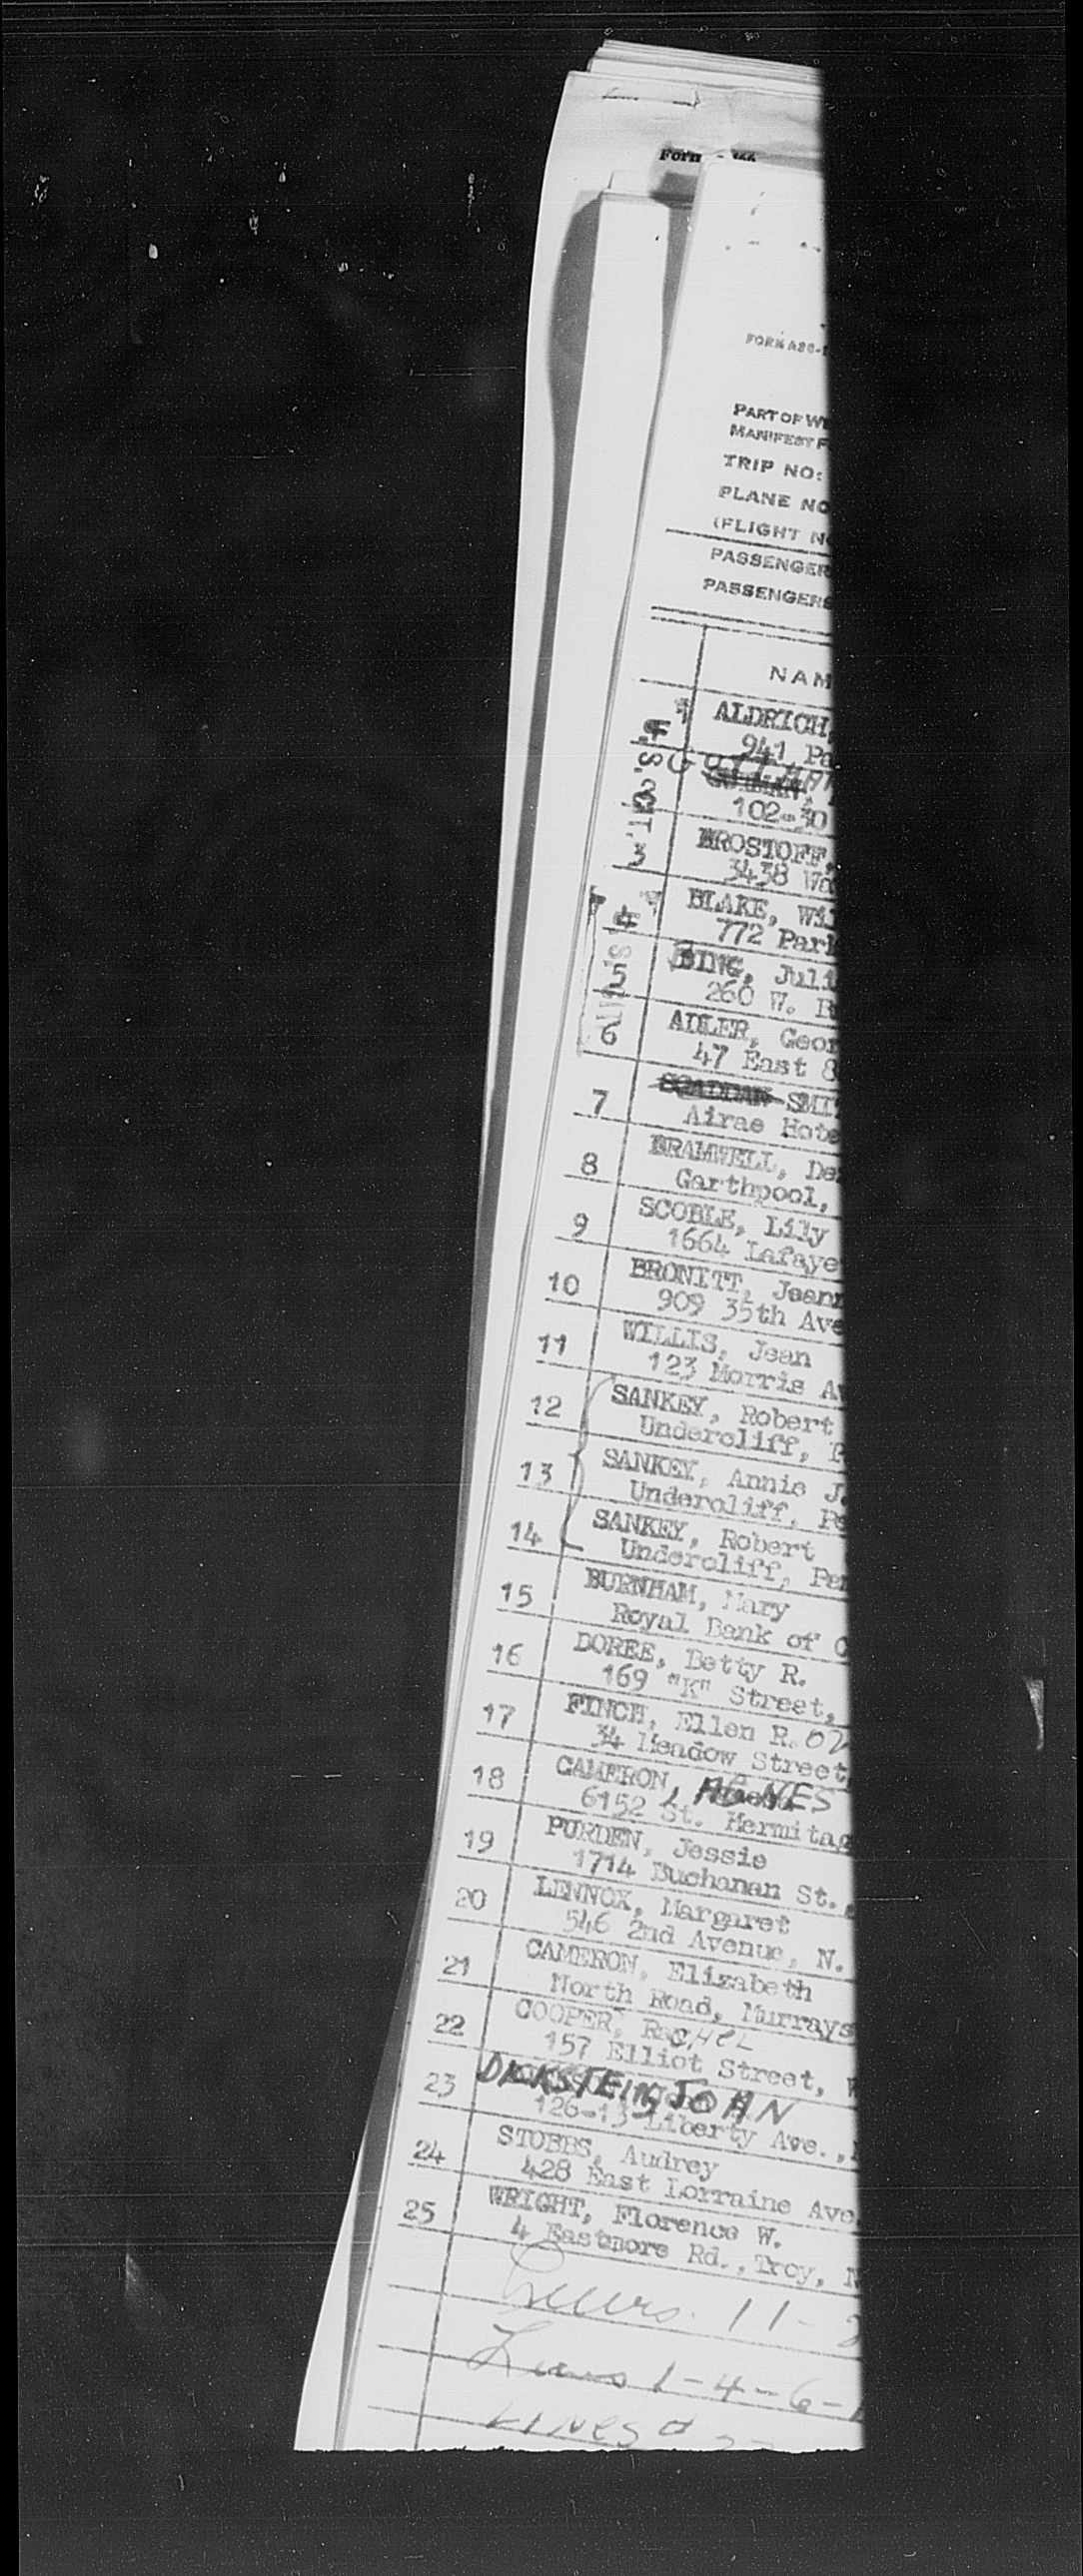 Form
FORM A26-1
PART OF W
MANIFEST F
TRIP NO:
PLANE NO
(FLIGHT N
PASSENGER
PASSENGERS
NAM
ALDRICH,
941 Pa
102-30
3 BROSTOFF,
3438 Wa
4 BLAKE, Wil
772 Park
5 BING, Juli
260 W. B
6 ADLER, Geor
47 East 8
7 SMI
Airae Hote
8 BRAMWELL, De
Garthpool,
9 SCOBLE, Lily
1664 Lafaye
10 BRONITT, Jeann
909 35th Ave
11 WILLIS, Jean
123 Morris Av
12 SANKEY, Robert
Undercliff, P
13 SANKEY, Annie J.
Undercliff, Pe
14 SANKEY, Robert
Undercliff, Pen
15 BURNHAM, Mary
Royal Bank of C
16 DOREE, Betty R.
169 "K" Street,
17 FINCH, Ellen R.
34 Meadow Street
18 CAMERON, AGNES
6152 St. Hermitag
19 PURDEN, Jessie
1714 Buchanan St.,
20 LENNOX, Margaret
546 2nd Avenue, N.
21 CAMERON, Elizabeth
North Road, Murrays
22 COOPER, RacHel
157 Elliot Street, W
23 DICKSTEIN, JOHN
126-13 Liberty Ave.,
24 STOBBS, Audrey
428 East Lorraine Ave.
25 WRIGHT, Florence W.
4 Eastmore Rd., Troy, N
11-2
Lines 1-4-6-
LINES